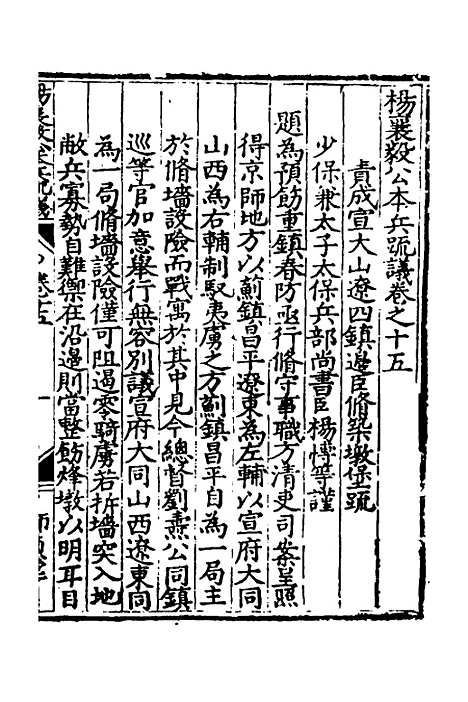 楊襄毅公本兵䟽議卷之十五
責成宣大山遼四鎮邊臣脩築墩堡䟽
少保兼太子太保兵部尚書臣楊愽等謹
題為預飭重鎮春防亟行脩守事職方清吏司案呈照
得京師地方以薊鎮昌平遼東為左輔以宣府大同
山西為右輔制馭夷虜之方薊鎮昌平自為一局主
於脩墻設險而戰寓於其中見今總督劉燾公同鎮
巡等官加意舉行無容別議宣府大同山西遼東向
為一局脩墻設險僅可阻遏零騎虜若拆墻突入地
敝兵寡勢自難禦在沿邊則當整飭烽墩以明耳目
卷十五